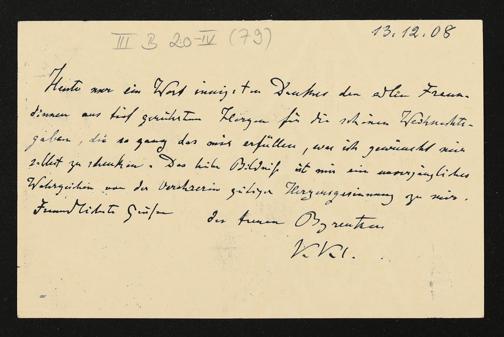 III B 20-IV (79)
13.12.08
Heute nur ein Wort innigsten Dankes den edlen Freun-
dinnen aus tief gerührtem Herzen für die schönen Weihnachts-
gaben, die so ganz das mir erfüllen, was ich gewünscht mir
selbst zu schenken. Das liebe Bildniß ist mir ein unvergängliches
Wahrzeichen von der Verehrerin gütiger Herzensgesinnung zu mir.
Freundlichste Grüße der treuen